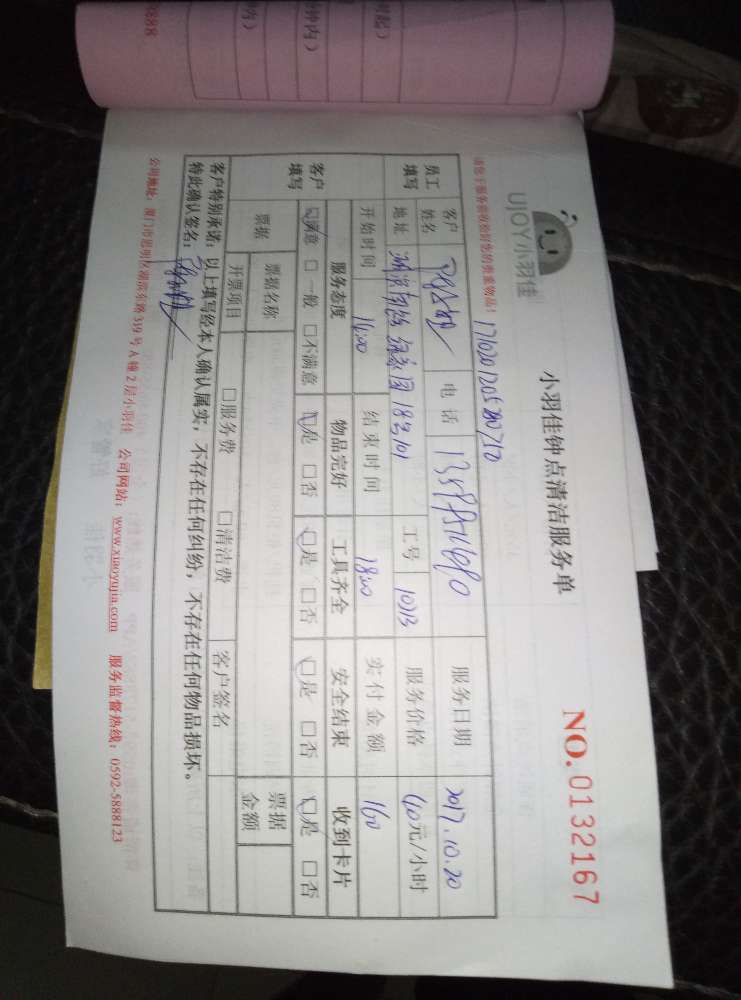 UJOY小羽佳
小羽佳钟点清洁服务单
NO.0132167
请您于服务前收拾好您的贵重物品！
员工填写
客户姓名 电话 服务日期 2017.10.20
地址 183101 工号 1013 服务价格 40元/小时
开始时间 14:00 结束时间 18:00 实付金额 160
客户填写
服务态度 物品完好 工具齐全 安全结束 收到卡片
□满意 □一般 □不满意 □是 □否 □是 □否 □是 □否 □是 □否
票据 票据名称 票据金额
开票项目 □服务费 □清洁费 客户签名
客户特别承诺：以上填写经本人确认属实，不存在任何纠纷，不存在任何物品损坏。
特此确认签名：
公司地址：厦门市思明区湖滨东路319号A幢2层小羽佳 公司网站：www.xiaoyujia.com 服务监督热线：0592-5888123